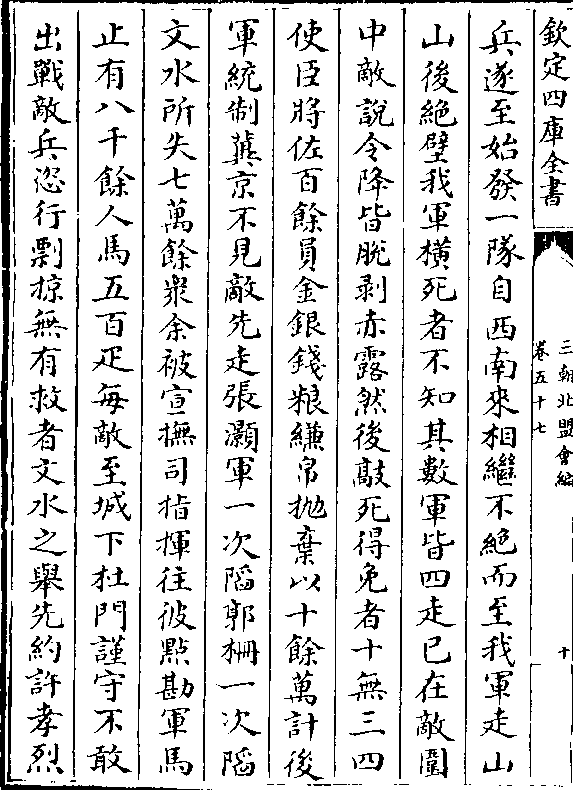 欽定四庫全書
三朝北盟會編
卷五十七
十
兵遂至始發一隊自西南來相繼不絶而至我軍走山
山後絶壁我軍橫死者不知其數軍皆四走已在敵圍
中敵說令降皆脫剥赤露然後敲死得免者十無三四
使臣將佐百餘員金銀錢粮縑帛抛棄以十餘萬計後
軍統制龔京不見敵先走張灝軍一次陷郭柵一次陷
文水所失七萬餘衆余被宣撫司指揮往彼㸃勘軍馬
止有八千餘人馬五百疋每敵至城下杜門謹守不敢
出戰敵兵恣行剽掠無有救者文水之舉先約許孝烈